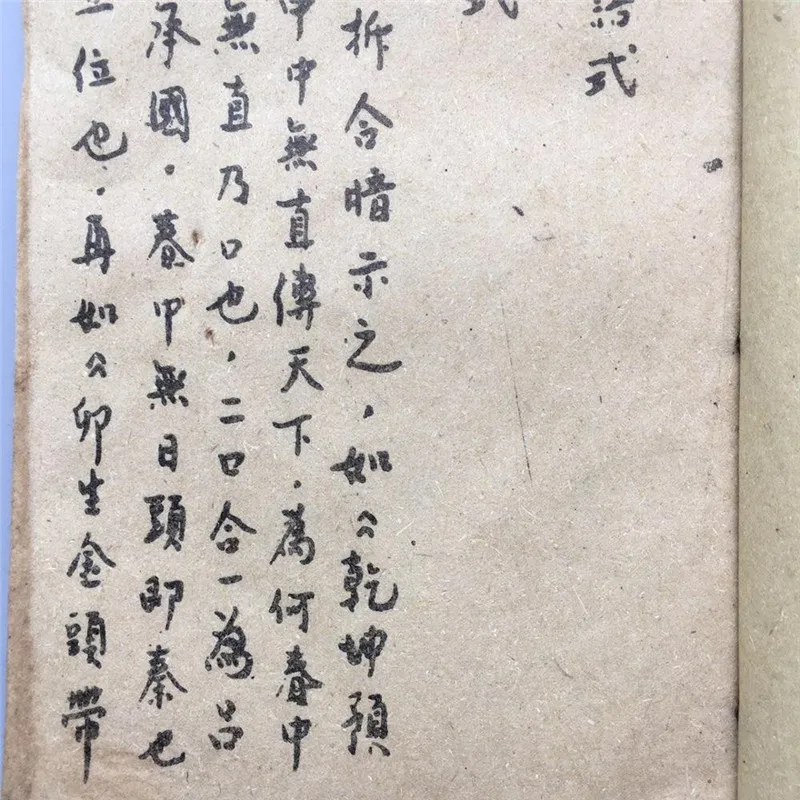 式
式
柝合暗示之，如〈乾坤預
中無直傳天下．為何春中
無直乃口也，二口合一為呂
承國．春中無日頭即秦也
位也．再如〈卯生金頭帶